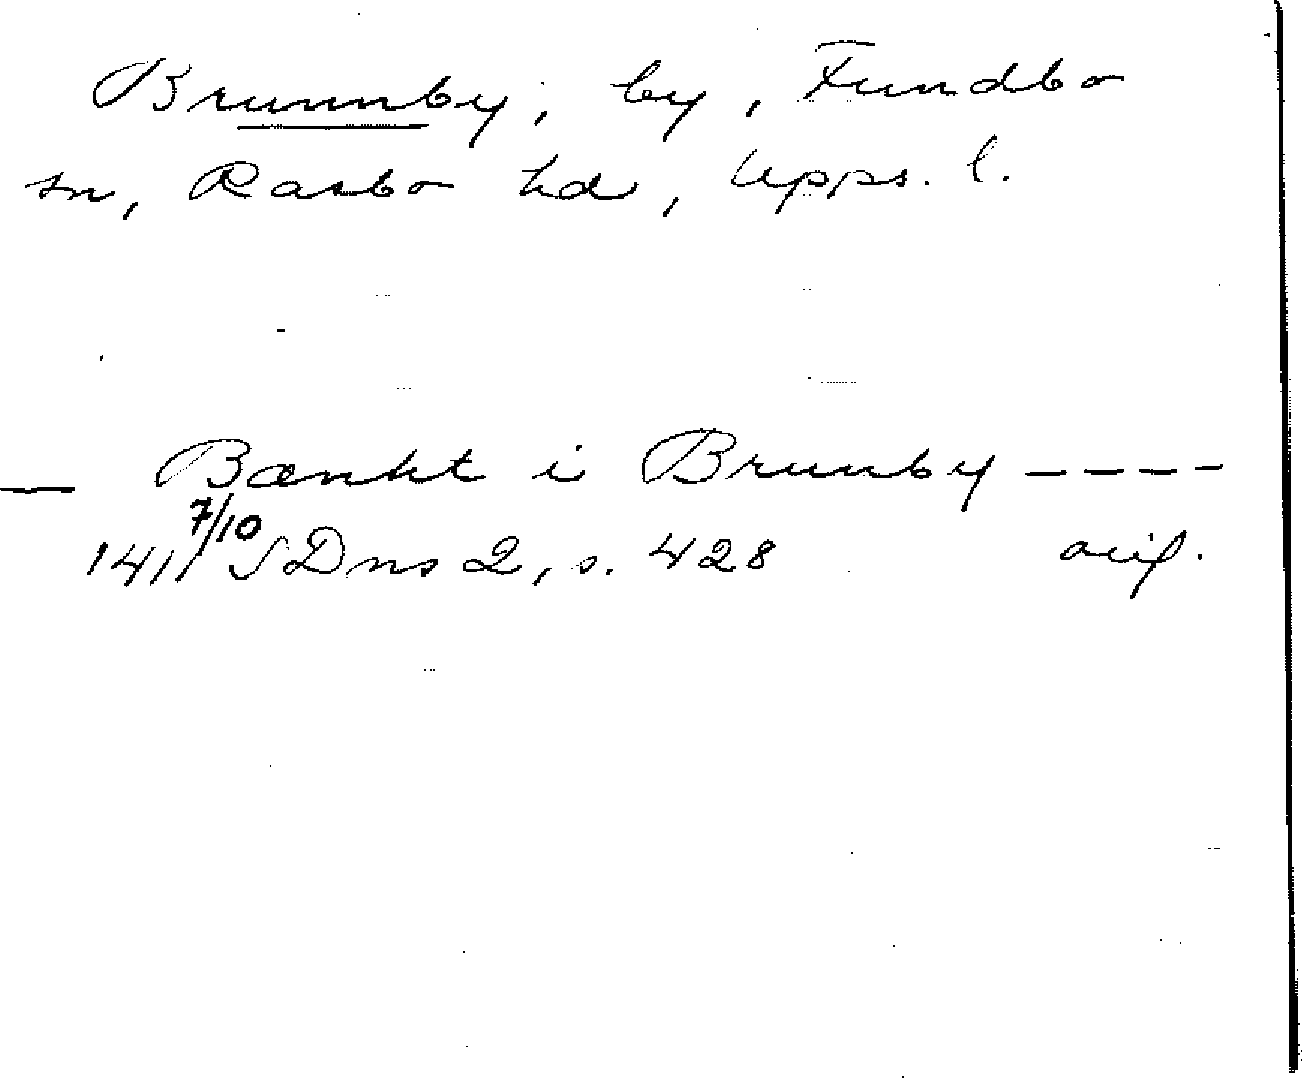 Brunnby, by, Fundbo
sn, Rasbo hd, Upps. l.
— Bænkt i Brunby ----
1411 7/10 SDns 2, s. 428